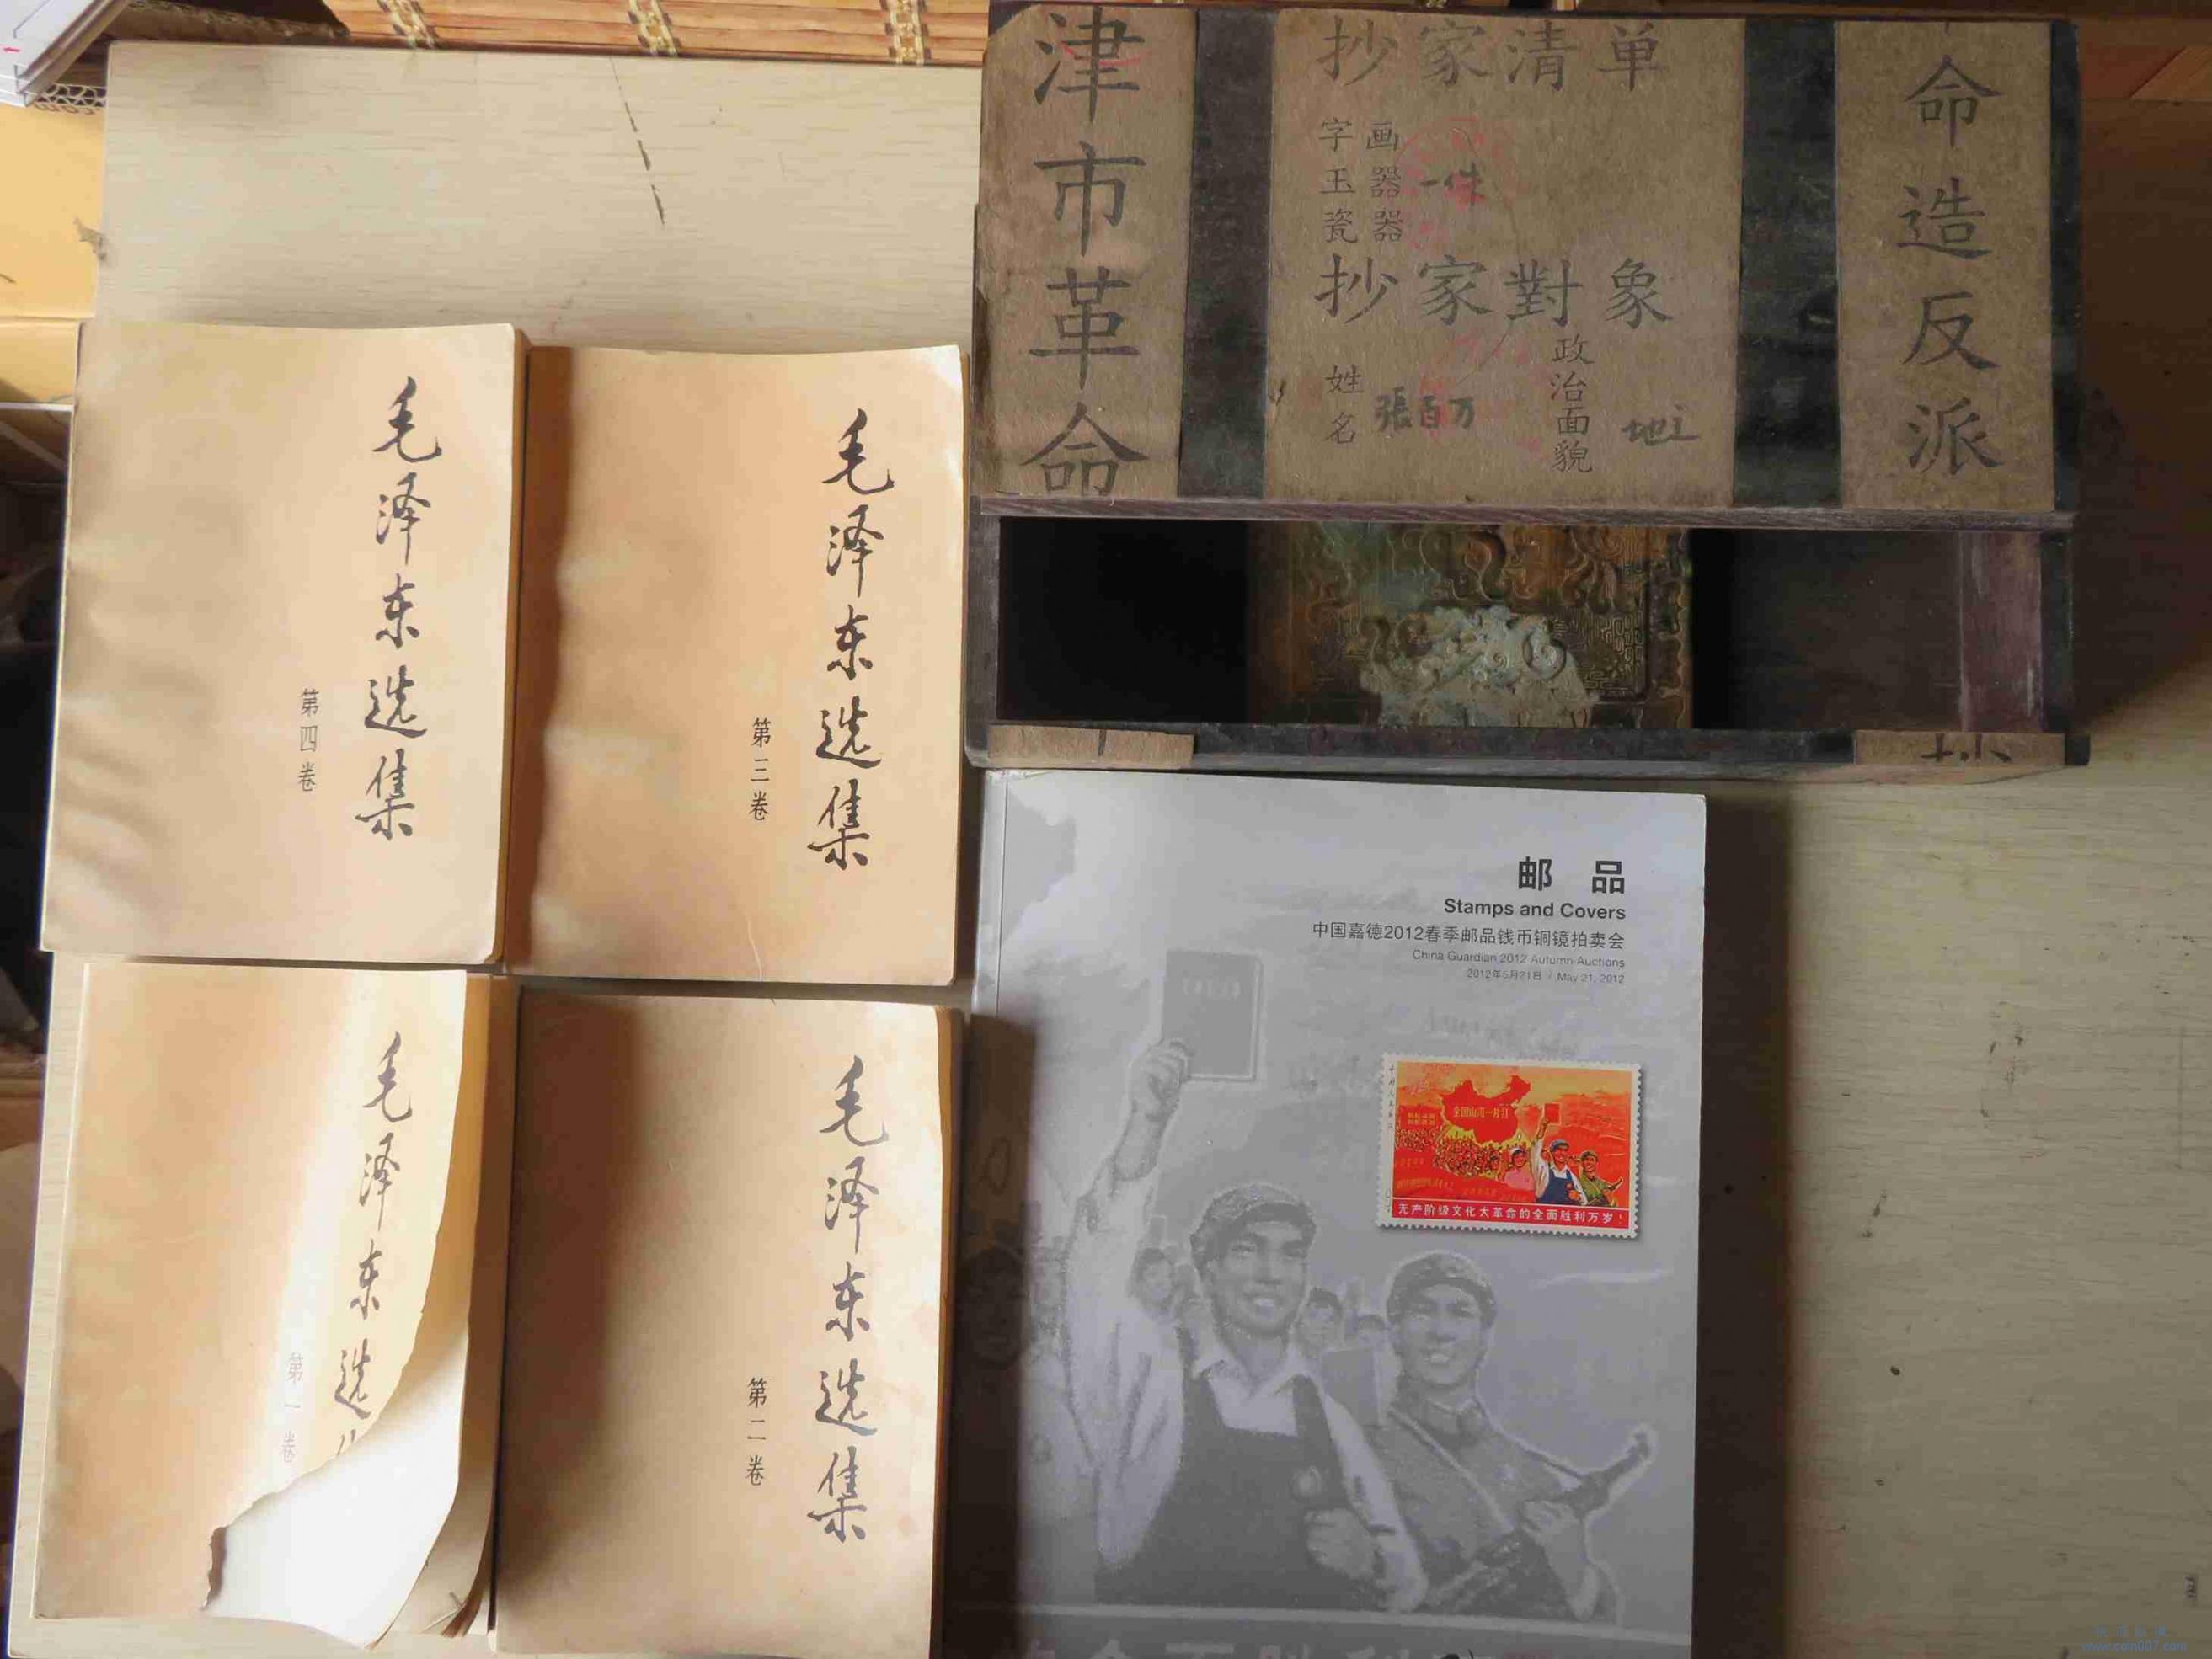 津市革命
抄家清单
字画
玉器 一件
瓷器
抄家對象
姓名
張百万
政治面貌
地主
命造反派
毛泽东选集
第四卷
毛泽东选集
第三卷
毛泽东选
第一卷
毛泽东选集
第二卷
邮 品
Stamps and Covers
中国嘉德2012春季邮品钱币铜镜拍卖会
China Guardian 2012 Autumn Auctions
2012年5月21日 / May 21, 2012
全国山河一片红
无产阶级文化大革命的全面胜利万岁!
www.coin007.com